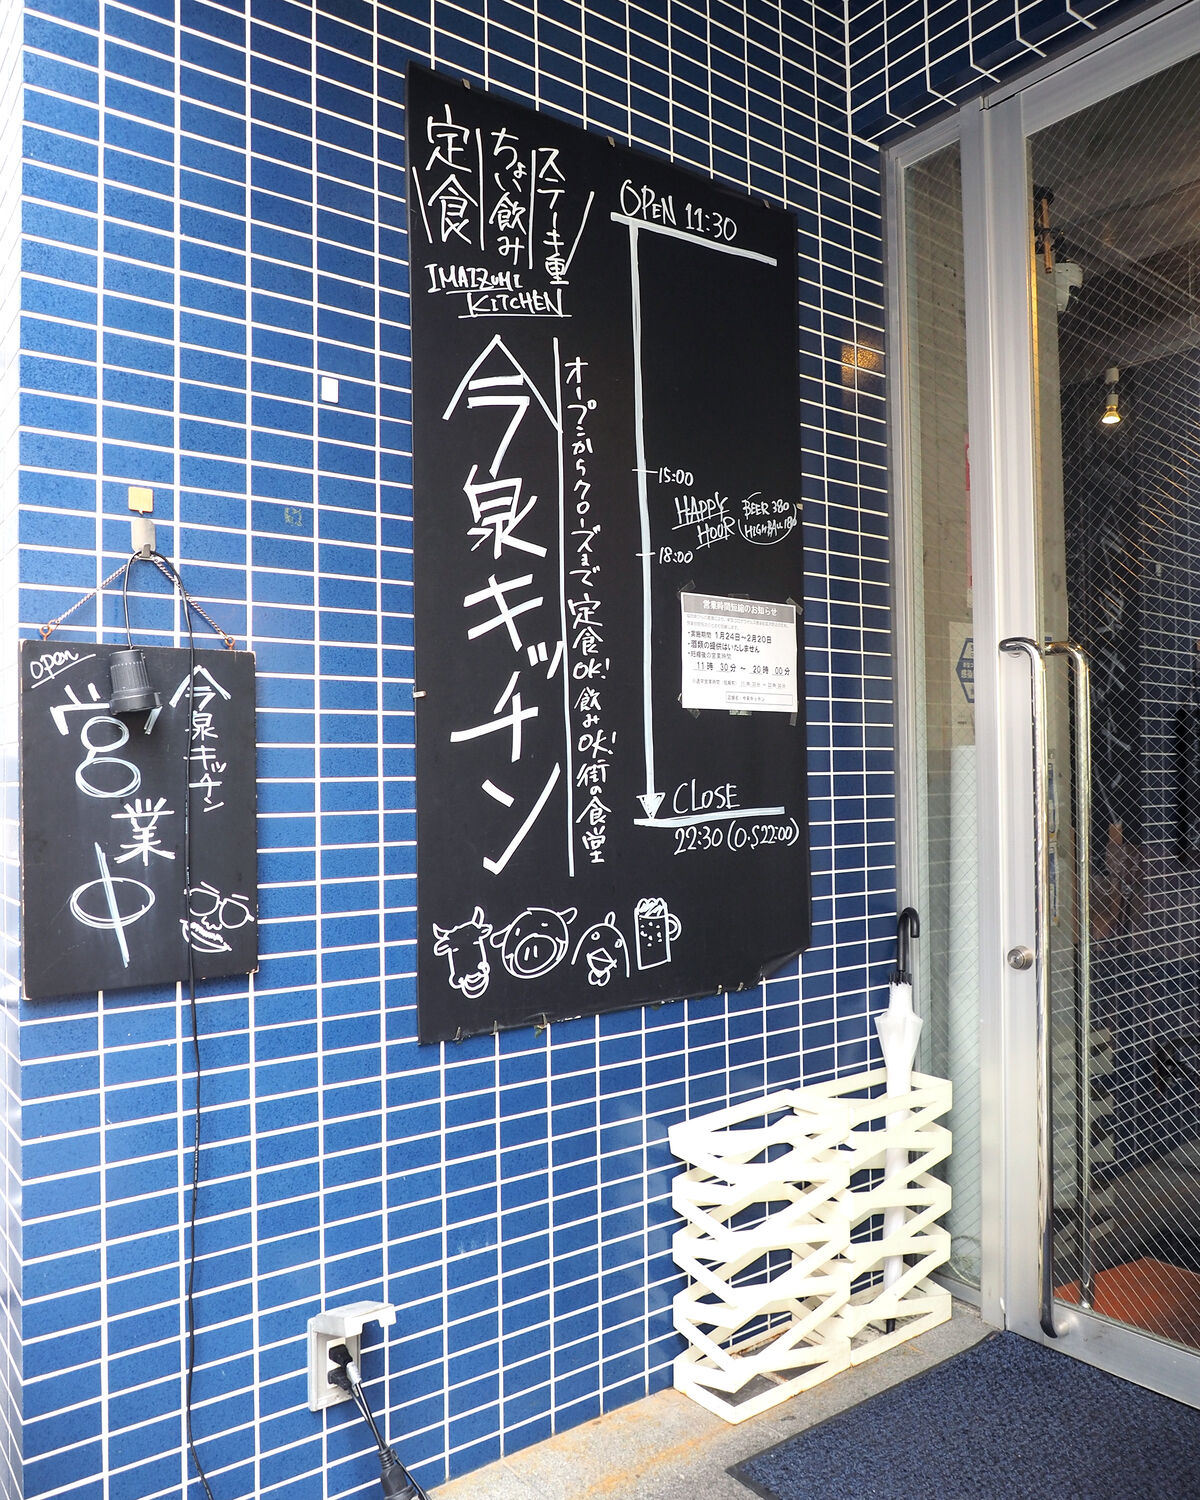 open
営業中
今泉キッチン
定食
ちょい飲み
ステーキ重
IMAIZUMI
KITCHEN
今泉キッチン
オープンからクローズまで 定食OK! 飲みOK! 街の食堂
OPEN 11:30
15:00
HAPPY
HOUR
BEER 380
HIGHBALL 180
18:00
営業時間短縮のお知らせ
・実施期間 1月24日～2月20日
・酒類の提供はいたしません
・短縮後の営業時間
11時 30分 ～ 20時 00分
CLOSE
22:30 (O.S 22:00)